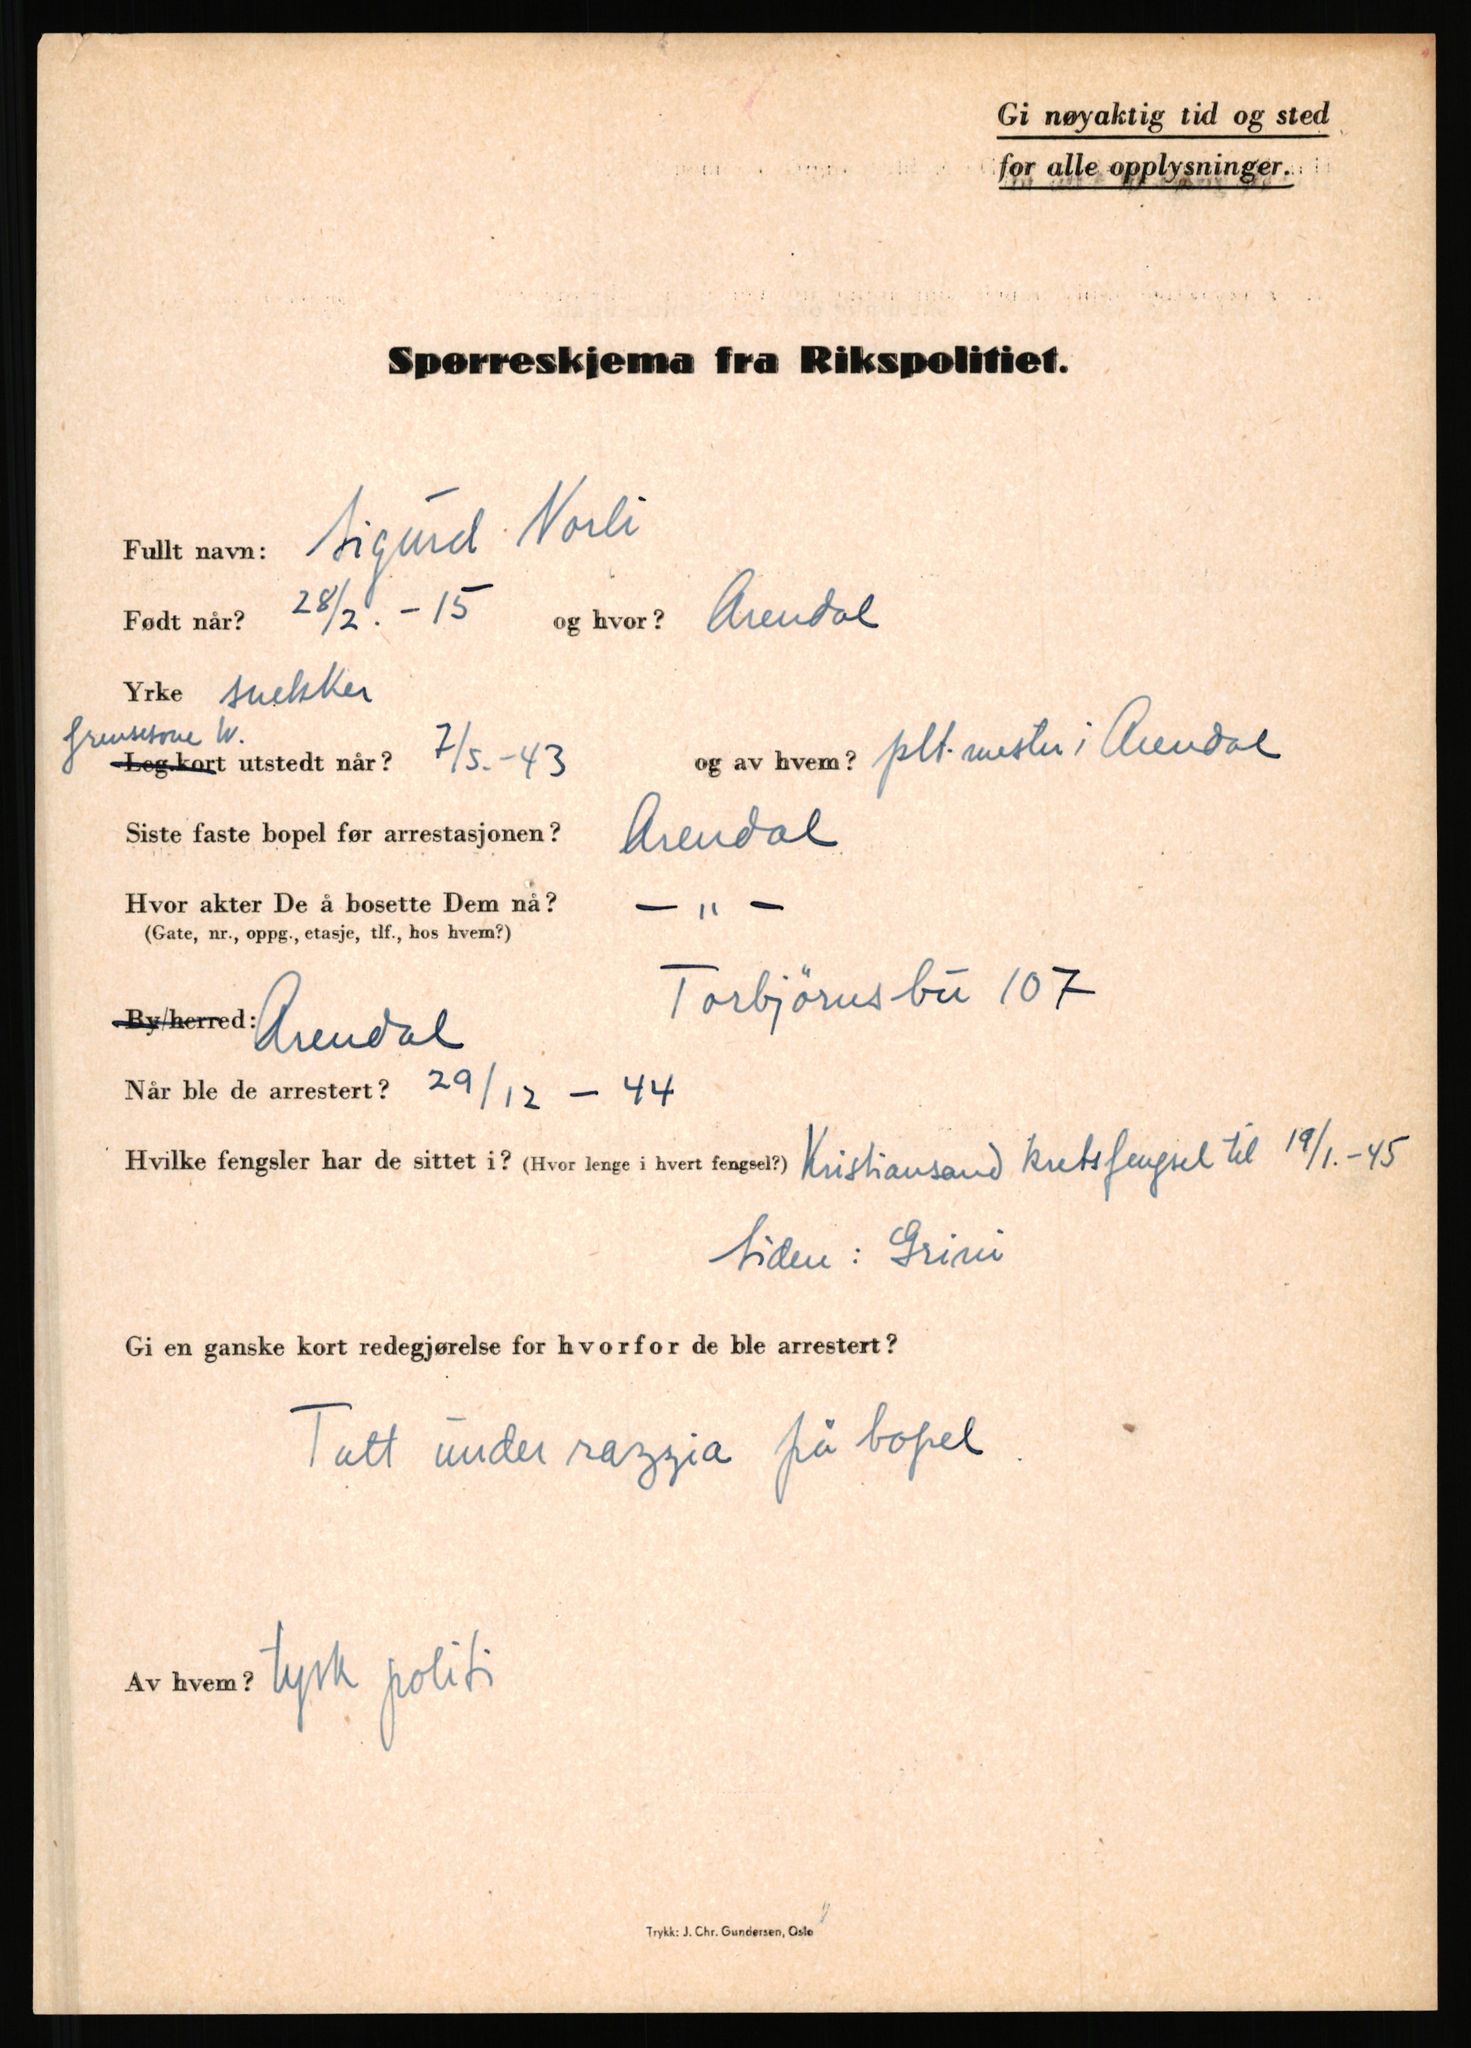 Gi nøyaktig tid og sted
for alle opplysninger.
Spørreskjema fra Rikspolitiet.
Fullt navn: Sigurd Norli
Født når? 28/2. - 15 og hvor? Arendal
Yrke snekker
Grensesone W.
Leg.kort utstedt når? 7/5. - 43 og av hvem? plt. mester i Arendal
Siste faste bopel før arrestasjonen? Arendal
Hvor akter De å bosette Dem nå? — " —
(Gate, nr., oppg., etasje, tlf., hos hvem?)
Torbjörnsbu 107
By/herred: Arendal
Når ble de arrestert? 29/12 - 44
Hvilke fengsler har de sittet i? (Hvor lenge i hvert fengsel?) Kristiansand kretsfengsel til 19/1. - 45
Siden: Grini
Gi en ganske kort redegjørelse for hvorfor de ble arrestert?
Tatt under razzia på bopel
Av hvem? tysk politi
Trykk: J. Chr. Gundersen, Oslo